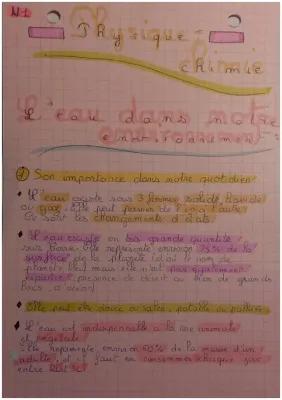 N°1
Physique-
chimie
L'eau dans notre
environnement
① Son importance dans notre quotidien
L'eau existe sous 3 formes solide, liquide
ou gaz, elle peut passer de l'une à l'autre
Ce sont les changements d'états.
L'eau existe en très grande quantité
sur Terre. Elle représente environ 75% de la
surface de la planète (d'où le nom de
planète bleue) mais elle n'est pas également
répartie: présence de désert ou bien de grands
lacs, océan)
Elle peut être douce ou salée, potable ou polluée
L'eau est indispensable à la vie animale
et végétale.
Elle représente environ 60% de la masse d'un
adulte, et il faut en consommer chaque jour
entre